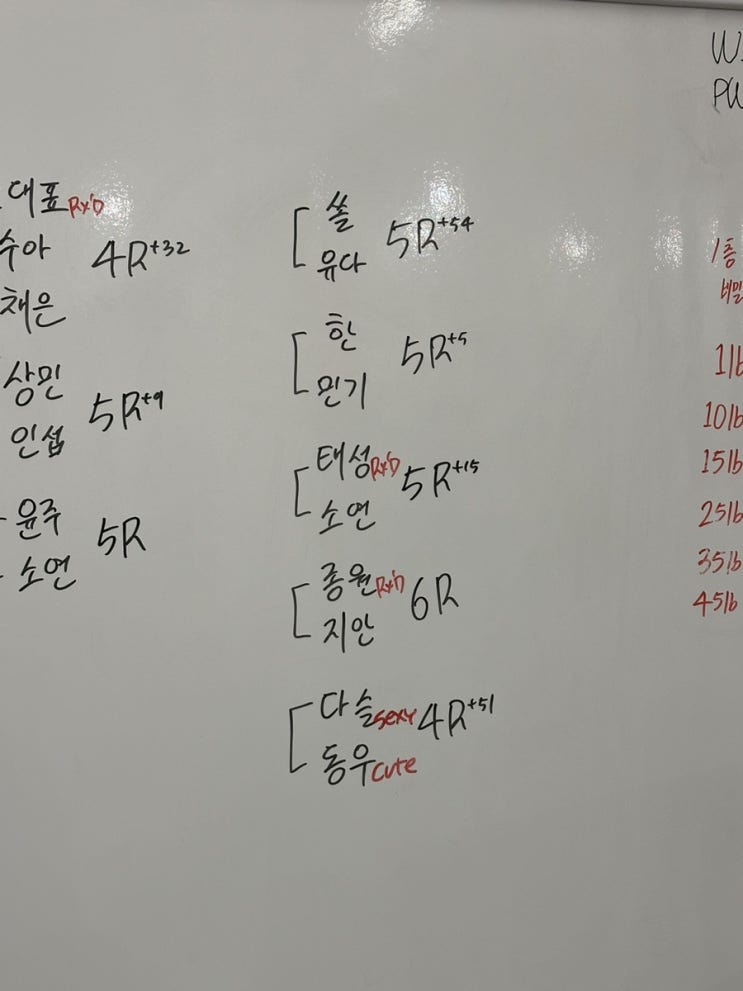 대표 Rx'D
수아 4R+32
채은
상민 5R+9
인섭
윤주 5R
소연
쏠 5R+54
유다
한 5R+5
민기
태성 Rx'D 5R+15
소연
종원 Rx'D 6R
지안
다슬 sexy 4R+51
동우 cute
PW
1층
1lb
10lb
15lb
25lb
35lb
45lb